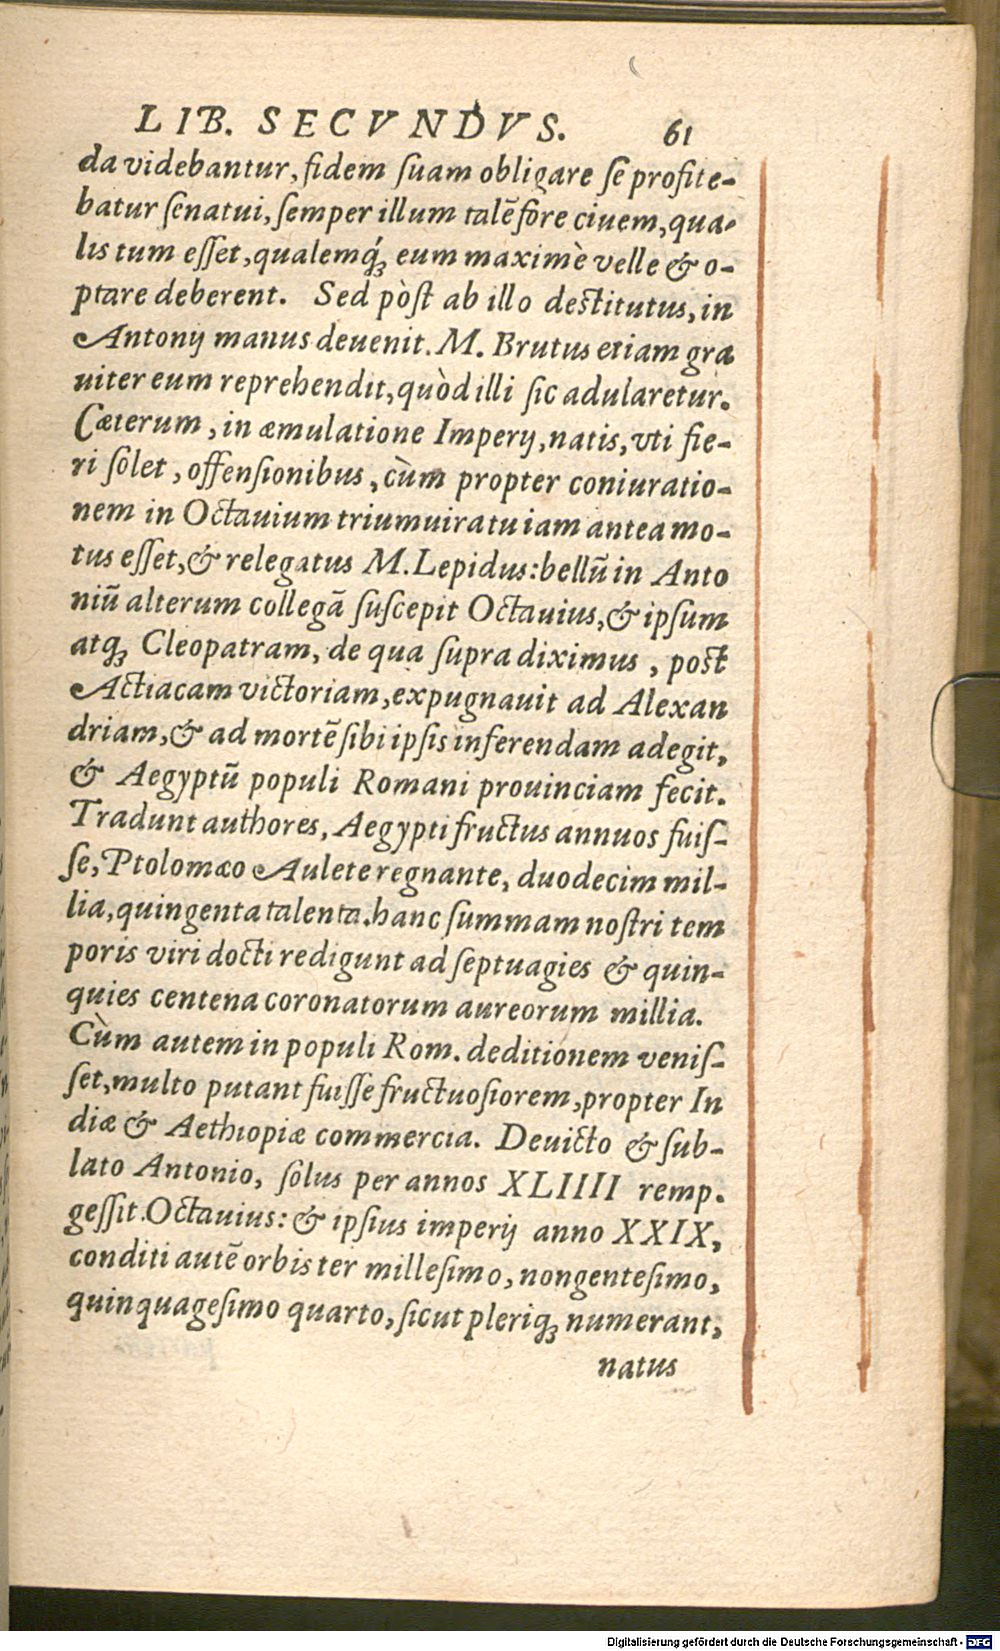 LIB. SECVNDVS. 61
da videbantur, fidem ſuam obligare ſe profite-
batur ſenatui, ſemper illum talẽ fore ciuem, qua-
lis tum eſſet, qualemq́; eum maximè velle & o-
ptare deberent. Sed pòſt ab illo deſtitutus, in
Antonij manus deuenit. M. Brutus etiam gra
uiter eum reprehendit, quòd illi ſic adularetur.
Cæterum, in æmulatione Imperij, natis, vti fie-
ri ſolet, offenſionibus, cùm propter coniuratio-
nem in Octauium triumuiratu iam antea mo-
tus eſſet, & relegatus M. Lepidus: bellũ in Anto
niũ alterum collegã ſuſcepit Octauius, & ipſum
atq; Cleopatram, de qua ſupra diximus, poſt
Actiacam victoriam, expugnauit ad Alexan
driam, & ad mortẽ ſibi ipſis inferendam adegit,
& Aegyptũ populi Romani prouinciam fecit.
Tradunt authores, Aegypti fructus annuos fuiſ-
ſe, Ptolomæo Aulete regnante, duodecim mil-
lia, quingenta talenta. hanc ſummam noſtri tem
poris viri docti redigunt ad ſeptuagies & quin-
quies centena coronatorum aureorum millia.
Cùm autem in populi Rom. deditionem veniſ-
ſet, multo putant fuiſſe fructuoſiorem, propter In
diæ & Aethiopiæ commercia. Deuicto & ſub-
lato Antonio, ſolus per annos XLIIII remp.
geſſit. Octauius: & ipſius imperij anno XXIX,
conditi autẽ orbis ter milleſimo, nongenteſimo,
quinquageſimo quarto, ſicut pleriq; numerant,
natus
Digitalisierung gefördert durch die Deutsche Forschungsgemeinschaft - DFG